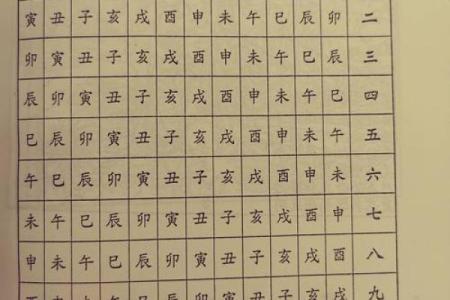 寅 丑 子 亥 戌 酉 申 未 午 巳 辰 卯 二
卯 寅 丑 子 亥 戌 酉 申 未 午 巳 辰 三
辰 卯 寅 丑 子 亥 戌 酉 申 未 午 巳 四
巳 辰 卯 寅 丑 子 亥 戌 酉 申 未 午 五
午 巳 辰 卯 寅 丑 子 亥 戌 酉 申 未 六
未 午 巳 辰 卯 寅 丑 子 亥 戌 酉 申 七
申 未 午 巳 辰 卯 寅 丑 子 亥 戌 酉 八
卯 寅 丑 子 亥 戌 九